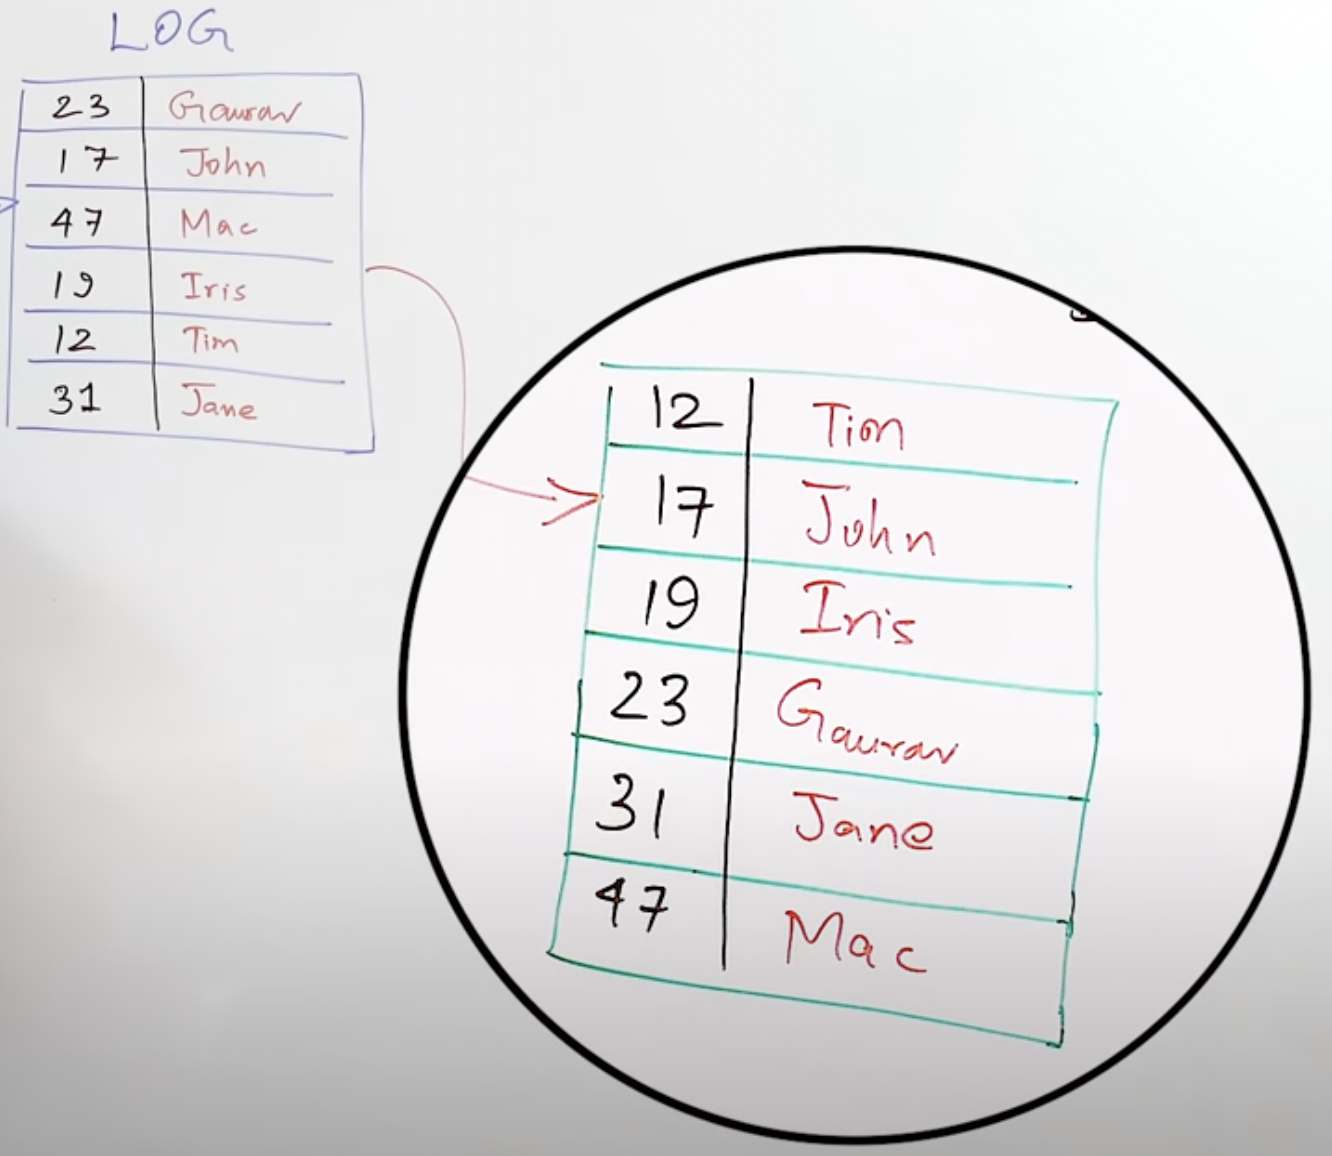 LOG
23 Gaurav
17 John
47 Mac
19 Iris
12 Tim
31 Jane
12 Tim
17 John
19 Iris
23 Gaurav
31 Jane
47 Mac